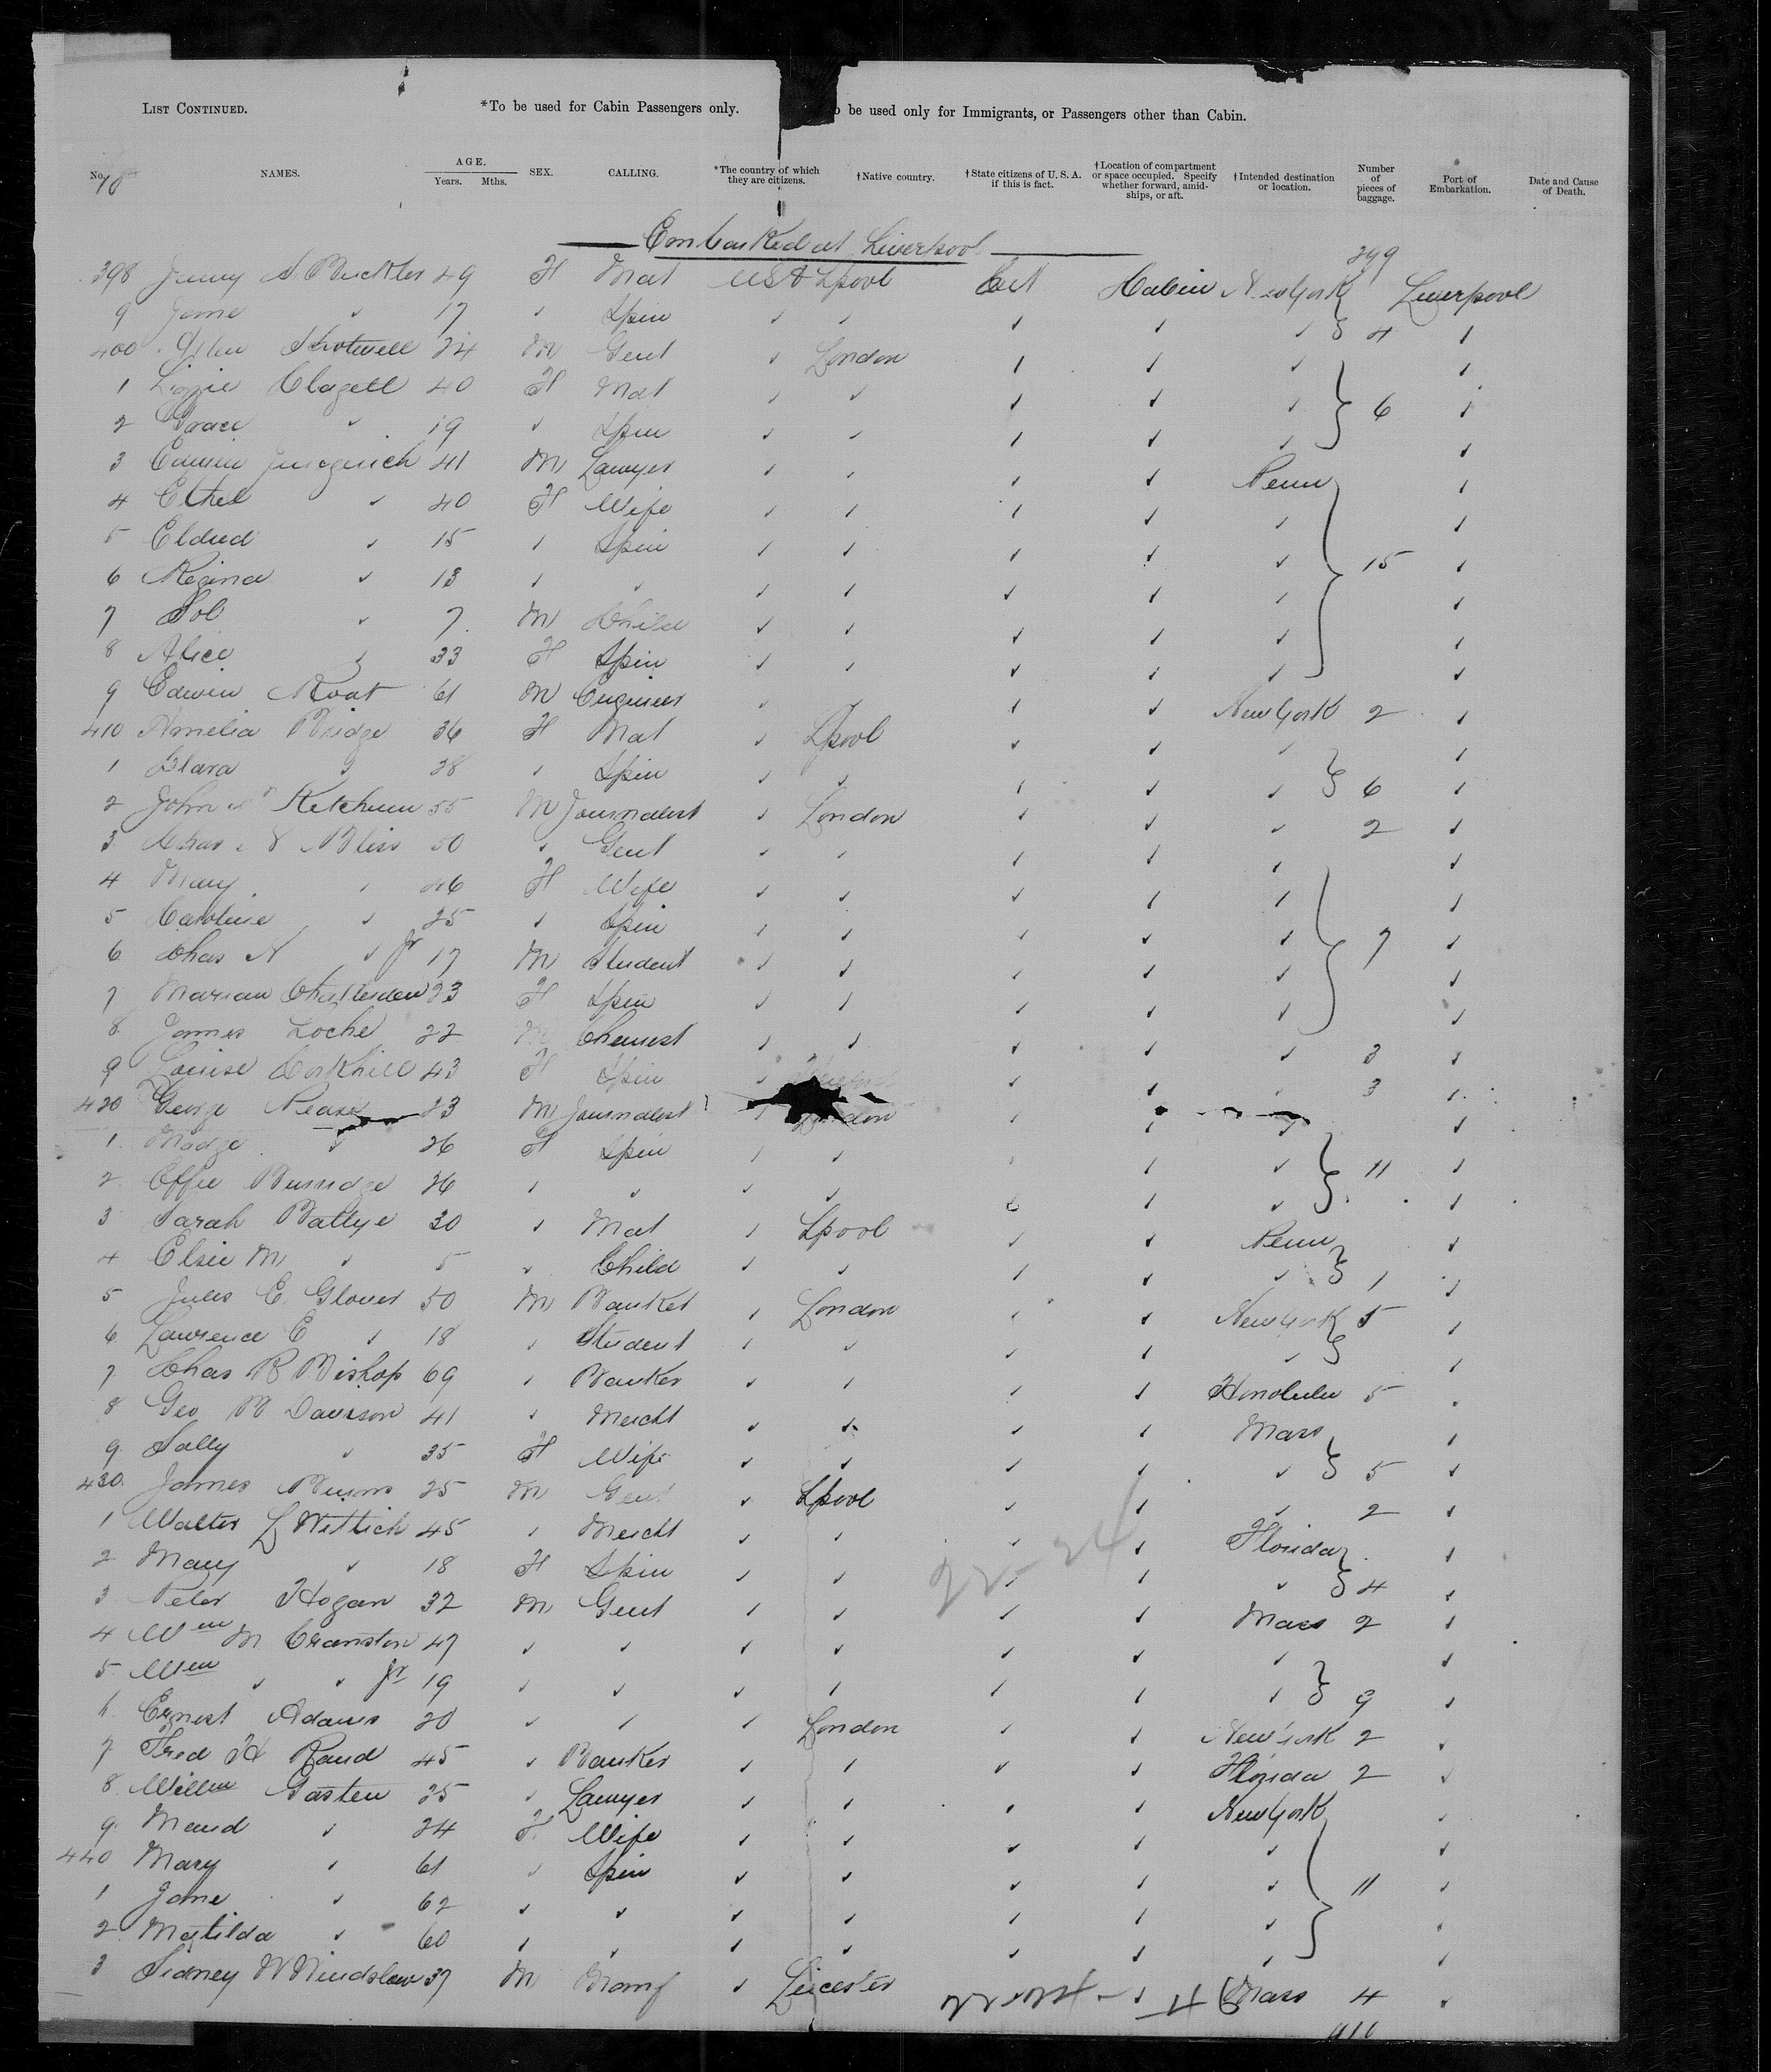 LIST CONTINUED. *To be used for Cabin Passengers only. be used only for Immigrants, or Passengers other than Cabin.
No. NAMES. AGE. Years. Mths. SEX. CALLING. *The country of which they are citizens. †Native country. †State citizens of U. S. A. if this is fact. †Location of compartment or space occupied. Specify whether forward, amidships, or aft. †Intended destination or location. Number of pieces of baggage. Port of Embarkation. Date and Cause of Death.
10
Embarked at Liverpool
299
398 Jenny A. Buckler 49 F Mat USA Lpool Cit Cabin New York Liverpool
9 Jane " 17 " Spin " " " " " 4 "
400 Shotwell 24 M Gent " London " " " "
1 Lizzie Clagett 40 F Mat " " " " " 6 "
2 Grace " 19 " Spin " " " " " "
3 Edwin 41 M Lawyer " " " " Penn "
4 Ethel " 40 F Wife " " " " " "
5 Eldred " 15 " Spin " " " " " 15 "
6 Regina " 13 " " " " " " " "
7 Sol " 7 M Child " " " " " "
8 Alice " 33 F Spin " " " " " "
9 Edwin Root 61 M Engineer " " " " New York 2 "
410 Amelia Bridge 36 F Mat " Lpool " " " "
1 Clara " 28 " Spin " " " " " 6 "
2 John Ketchum 55 M Journalist " London " " " 2 "
3 Chas N Bliss 50 " Gent " " " " " "
4 Mary " 46 F Wife " " " " " "
5 Caroline " 25 " Spin " " " " " 7 "
6 Chas N " Jr 17 M Student " " " " " "
7 Marian 23 F Spin " " " " " "
8 James Loche 22 M Chemist " " " " " 3 "
9 Louise Corkhill 43 F Spin " " " " 3 "
420 George Pease 23 M Journalist " London " " " "
1 Madge " 26 F Spin " " " " " 11 "
2 Effie Burridge 26 " " " " " " " "
3 Sarah Battye 30 " Mat " Lpool " " Penn "
4 Elsie M " 5 " Child " " " " " 1 "
5 Jules E Glover 50 M Banker " London " " New York 5 "
6 Lawrence E " 18 " Student " " " " " "
7 Chas R Bishop 69 " Banker " " " " Honolulu 5 "
8 Geo B Davison 41 " Mercht " " " " Mass "
9 Sally " 35 F Wife " " " " " 5 "
430 James Burns 25 M Gent " Lpool " " " 2 "
1 Walter L Wittich 45 " Mercht " " " " Florida "
2 Mary " 18 F Spin " " " " " 4 "
3 Peter Hogan 32 M Gent " " " " Mass 2 "
4 Wm M Cranston 47 " " " " " " " "
5 Wm " " Jr 19 " " " " " " " 9 "
6 Ernest Adams 20 " " " London " " New York 2 "
7 Fred H Rand 45 " Banker " " " " Florida 2 "
8 Willm Gasten 25 " Lawyer " " " " New York "
9 Maud " 24 F Wife " " " " " "
440 Mary " 61 " Spin " " " " " 11 "
1 Jane " 62 " " " " " " " "
2 Matilda " 60 " " " " " " " "
3 Sidney W Winslow 37 M Manf " Leicester " Mass 4 "
22-24